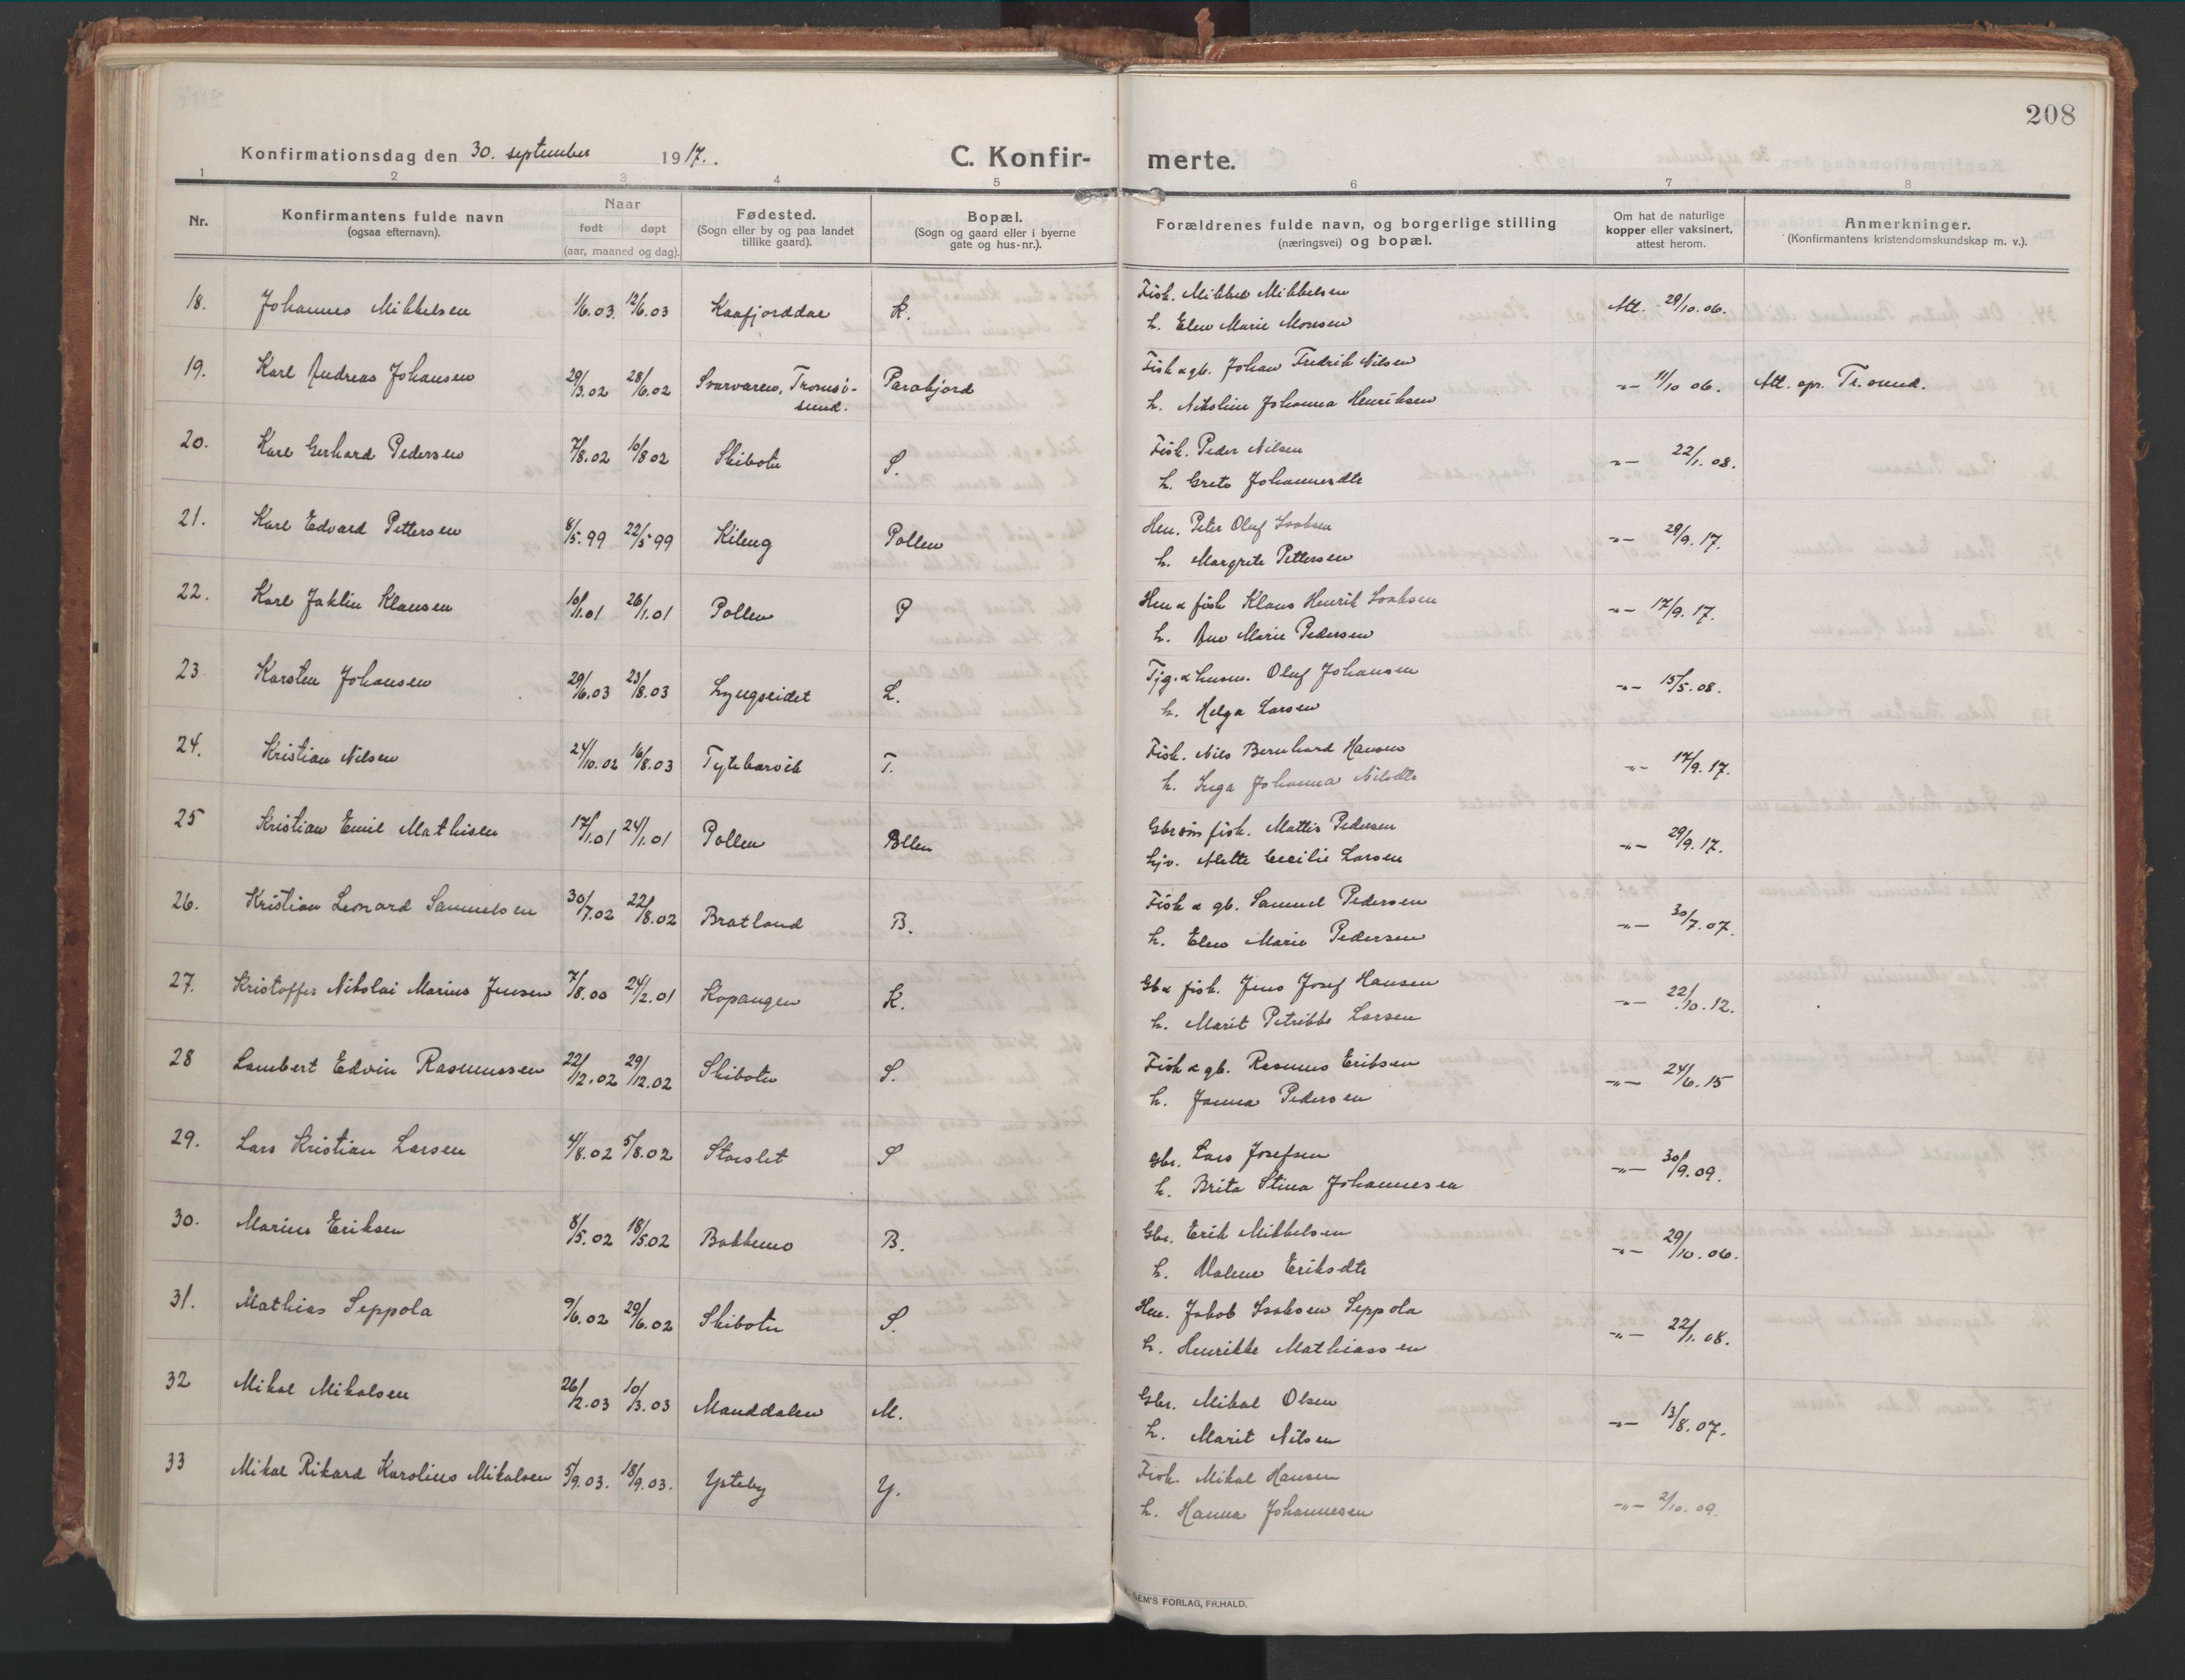 208
Konfirmationsdag den 30. september 1917. C. Konfir- merte.
1 2 3 4 5 6 7 8
Nr. Konfirmantens fulde navn (ogsaa efternavn). Naar født døpt (aar, maaned og dag). Fødested. (Sogn eller by og paa landet tillike gaard). Bopæl. (Sogn og gaard eller i byerne gate og hus-nr.). Forældrenes fulde navn, og borgerlige stilling (næringsvei) og bopæl. Om hat de naturlige kopper eller vaksinert, attest herom. Anmerkninger. (Konfirmantens kristendomskundskap m. v.).
18. Johannes Mikkelsen 1/6.03. 12/6.03 Kaafjorddal K. Fisk. Mikkel Mikkelsen
h. Elen Marie Monsen Att. 29/10.06.
19. Karl Andreas Johansen 29/3.02 28/6.02 Svarvaren, Tromsø-sund. Parakjord Fisk & gb. Johan Fredrik Nilsen
h. Nikoline Johanna Henriksen -"- 11/10 06. Att. spr. Tr.sund.
20. Karl Gerhard Pedersen 7/8.02 10/8 02 Skibotn S. Fisk. Peder Nilsen
h. Grete Johannesdtr -"- 22/1.08.
21. Karl Edvard Pettersen 8/5.99 22/5 99 Kileng Pollen Hus. Peter Oluf Isaksen
h. Margrete Pettersen -"- 29/9.17.
22. Karl Joklin Klausen 10/1.01 26/1.01 Pollen P Hus & fisk Klaus Henrik Isaksen
h. Ane Marie Pedersen -"- 17/9.17.
23 Karsten Johansen 29/6.03 23/8.03 Lyngseidet L. Tjg. & husm. Oluf Johansen
h. Helga Larsen -"- 15/5.08.
24. Kristian Nilsen 24/10.02 16/8.03 Tytebærvik T. Fisk. Nils Bernhard Hansen
h. Inga Johanna Nilsdtr -"- 17/9.17.
25 Kristian Emil Mathisen 17/1.01 24/1.01 Pollen Pollen Gbr som fisk. Mattis Pedersen
hjv. Mette Cecilie Larsen -"- 29/9.17.
26. Kristian Leonard Samuelsen 30/7.02 22/8.02 Bratland B. Fisk & gb. Samuel Pedersen
h. Elen Marie Pedersen -"- 30/7.07.
27. Kristoffer Nikolai Marius Jensen 7/8.00 24/2.01 Kopangen K. Gb & fisk. Jens Josef Hansen
h. Marit Petrikke Larsen -"- 22/10.12.
28 Lambert Edvin Rasmussen 22/12.02 29/12.02 Skibotn S. Fisk & gb. Rasmus Eriksen
h. Janna Pedersen -"- 24/6.15
29. Lars Kristian Larsen 4/8.02 5/8.02 Storslet S Gbr. Lars Josefsen
h. Brita Stina Johannesen -"- 30/9.09.
30. Marius Eriksen 8/5.02 18/5.02 Bakkemo B. Gbr. Erik Mikkelsen
h. Malene Eriksdtr -"- 29/10.06.
31. Mathias Seppola 9/6.02 29/6.02 Skibotn S. Hus. Jakob Isaksen Seppola
h. Henrikke Mathiassen -"- 22/1.08.
32 Mikal Mikalsen 26/2.03 10/3.03 Manddalen M. Gbr. Mikal Olsen
h. Marit Nilsen -"- 13/8.07.
33 Mikal Rikard Karolius Mikalsen 5/9.03. 18/9.03. Ysteby Y. Fisk. Mikal Hansen
h. Hanna Johannesen -"- 2/10.09.
SEM'S FORLAG, FR.HALD.